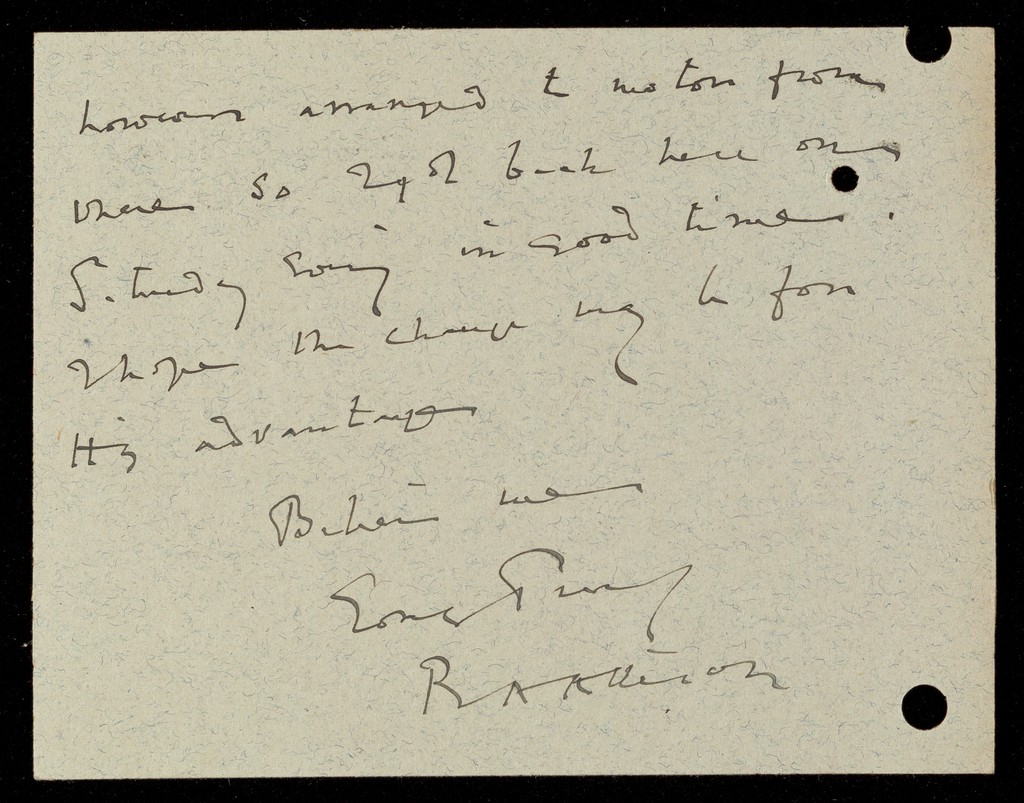 however arranged to motor from
there so I get back here on
Saturday evening in good time.
I hope the change may be for
His advantage
Believe me
Yours Truly
R A Atkinson